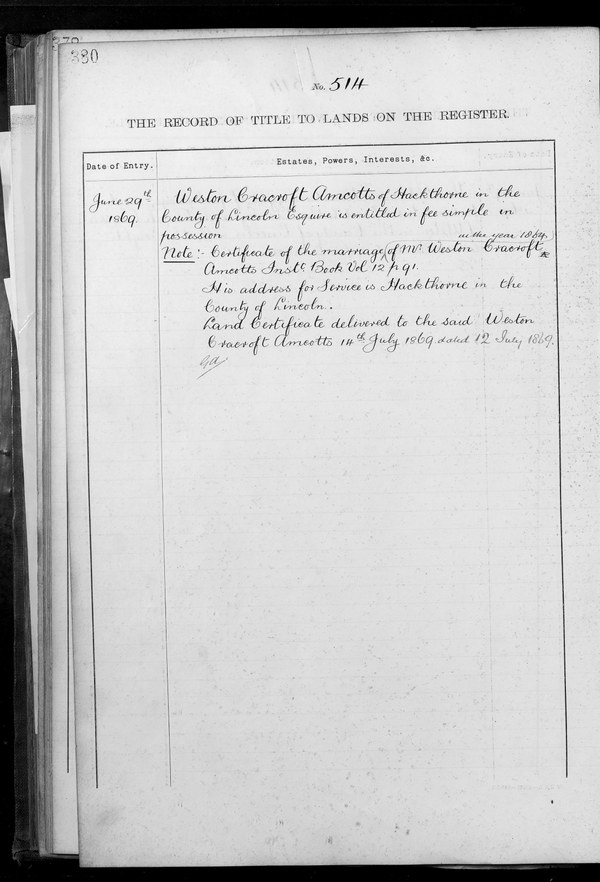 379
380
No. 514
THE RECORD OF TITLE TO LANDS ON THE REGISTER.
Date of Entry.
Estates, Powers, Interests, &c.
June 29th
1869.
Weston Cracroft Amcotts of Hackthorne in the
County of Lincoln Esquire is entitled in fee simple in
possession
in the year 1864.
Note:- Certificate of the marriage ^ of Mr. Weston Cracroft
Amcotts Instr. Book Vol 12 p 91.
His address for Service is Hackthorne in the
County of Lincoln.
Land Certificate delivered to the said Weston
Cracroft Amcotts 14th July 1869. dated 12 July 1869.